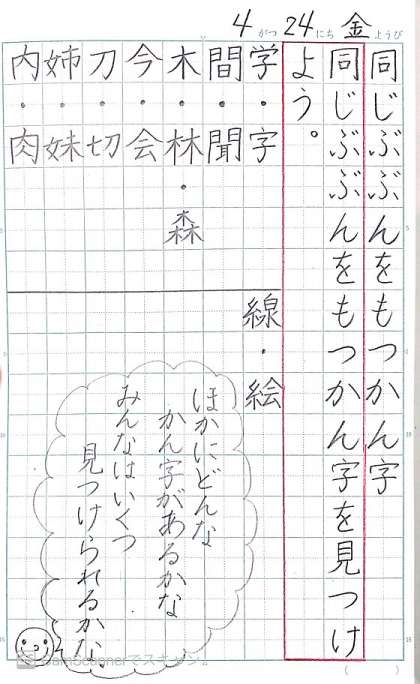 4がつ24にち金ようび
同じぶぶんをもつかん字
同じぶぶんをもつかん字を見つけ
よう。
学・字
線・絵
間・聞
木・林・森
今・会
刀・切
姉・妹
内・肉
ほかにどんな
かん字があるかな
みんなはいくつ
見つけられるかな
CamScannerでスキャン